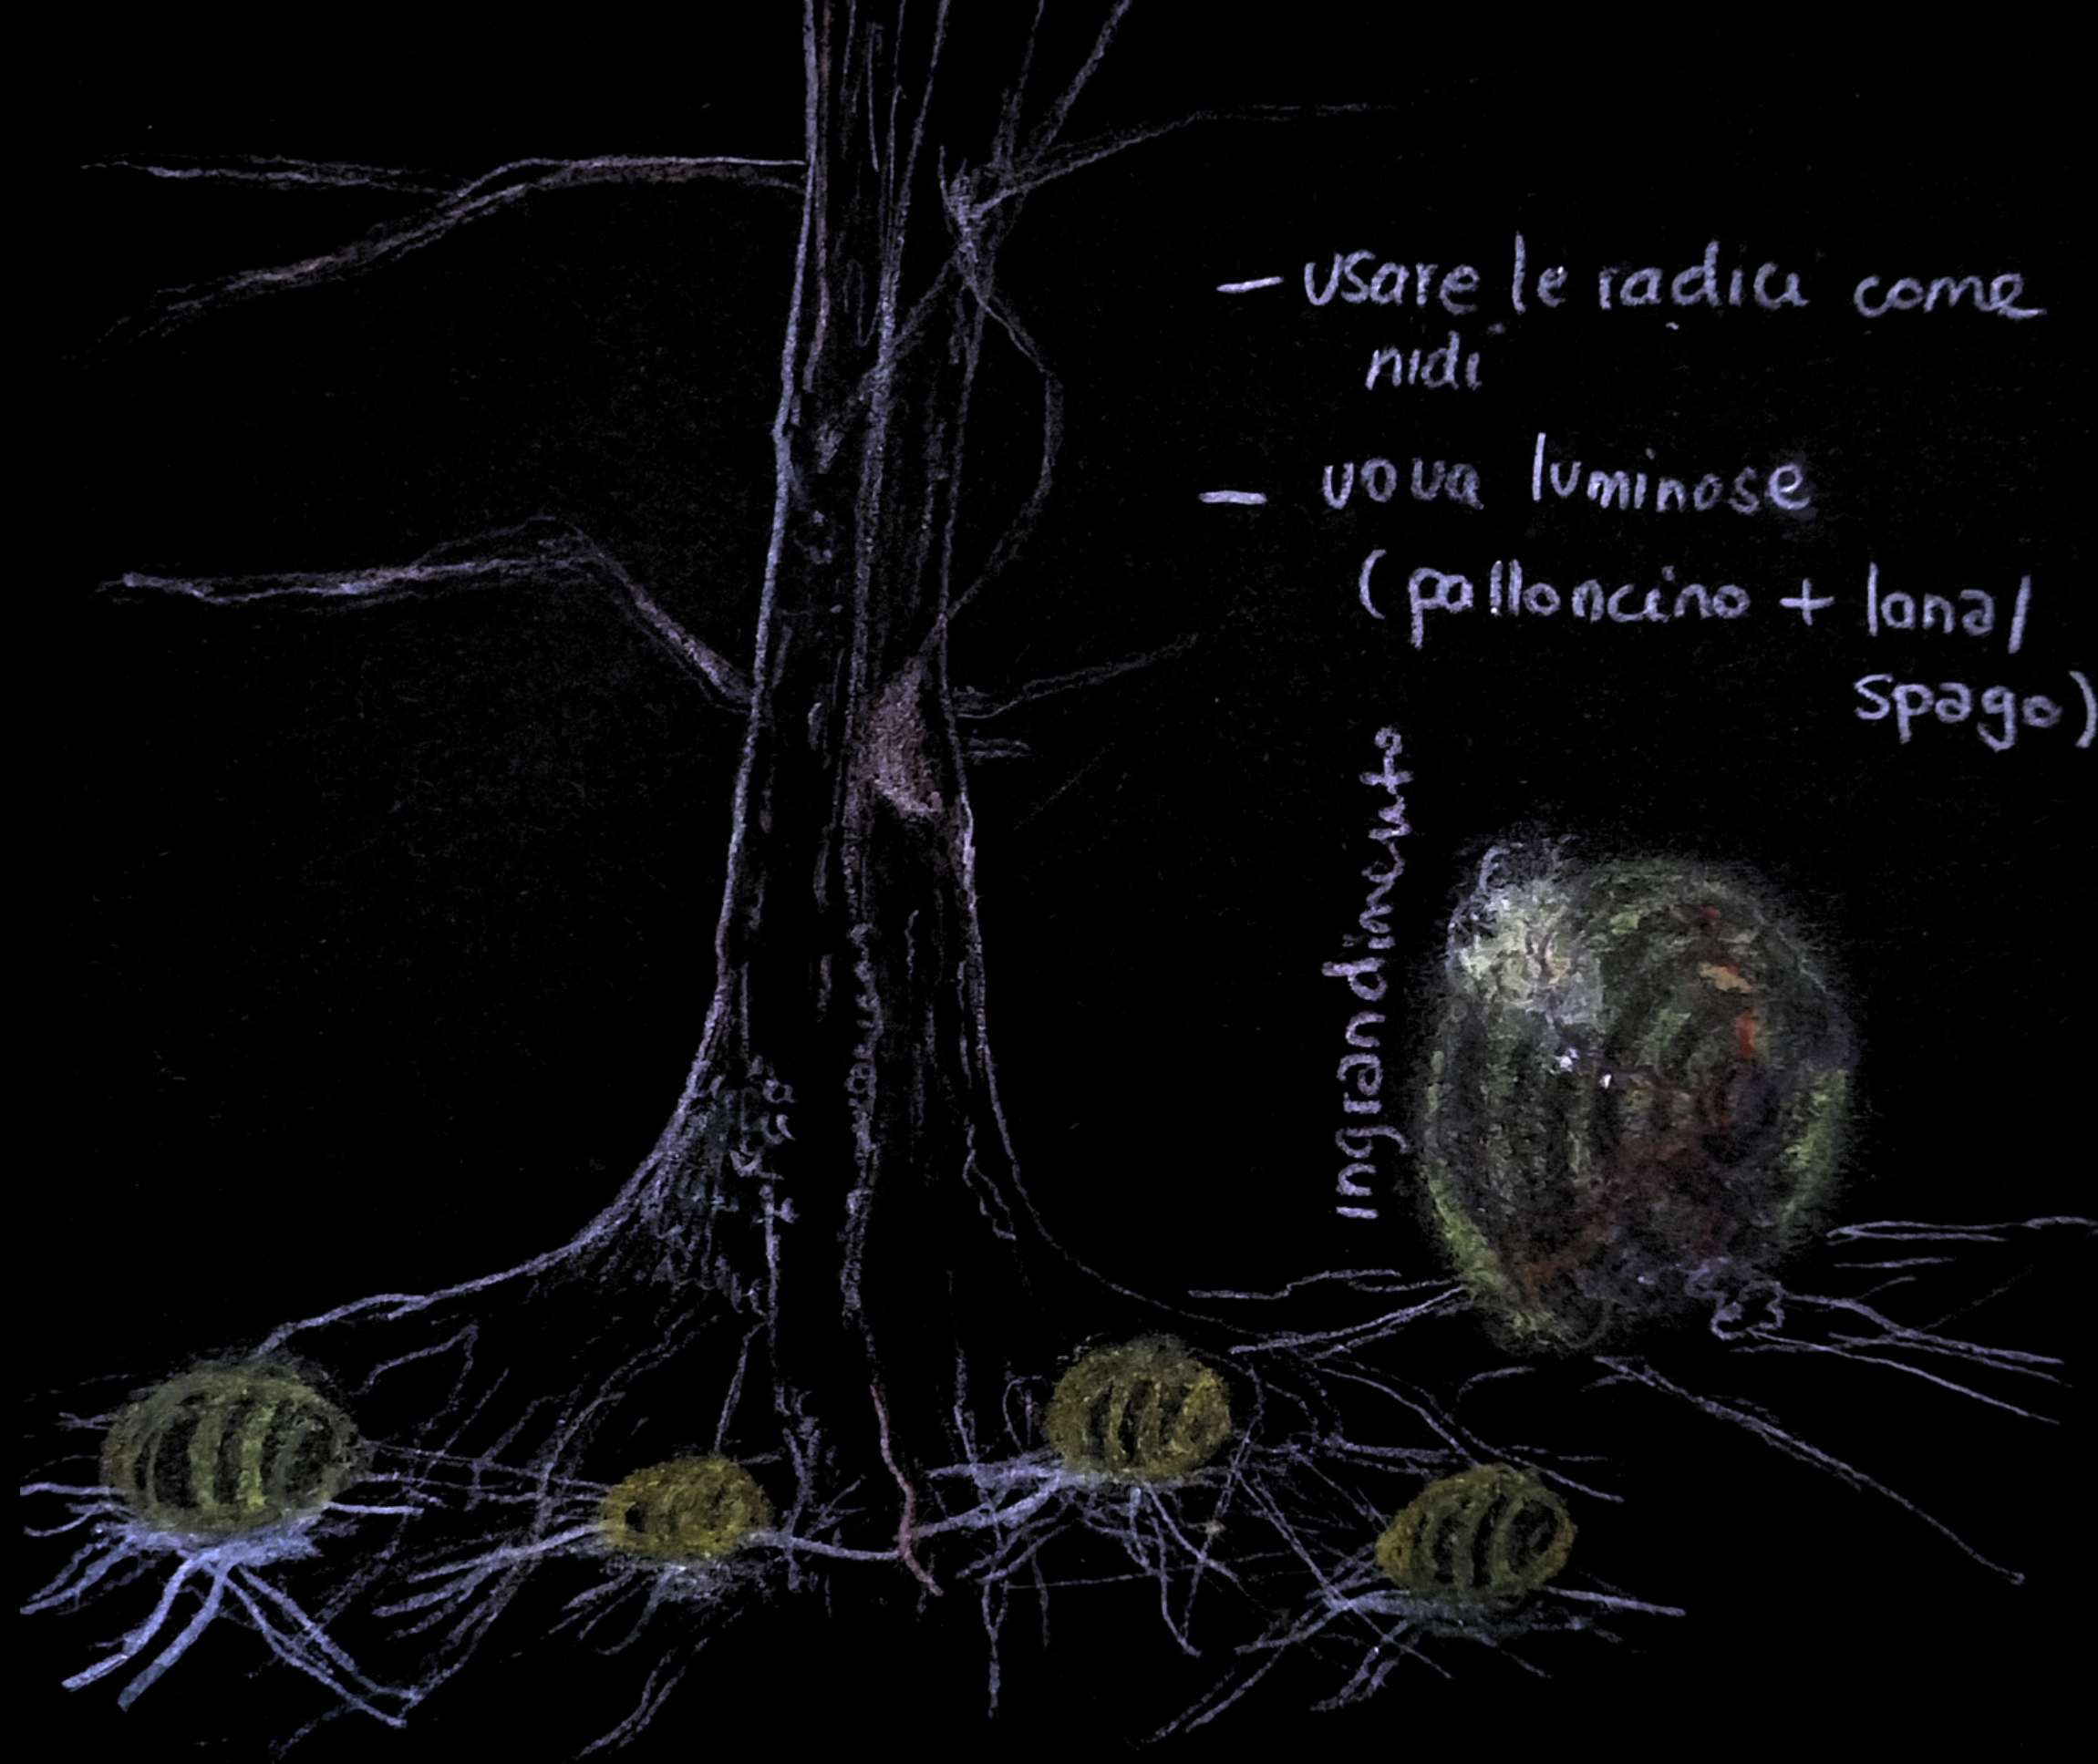 - usare le radici come
nidi
- uova luminose
(palloncino + lana/
spago)
Ingrandimento